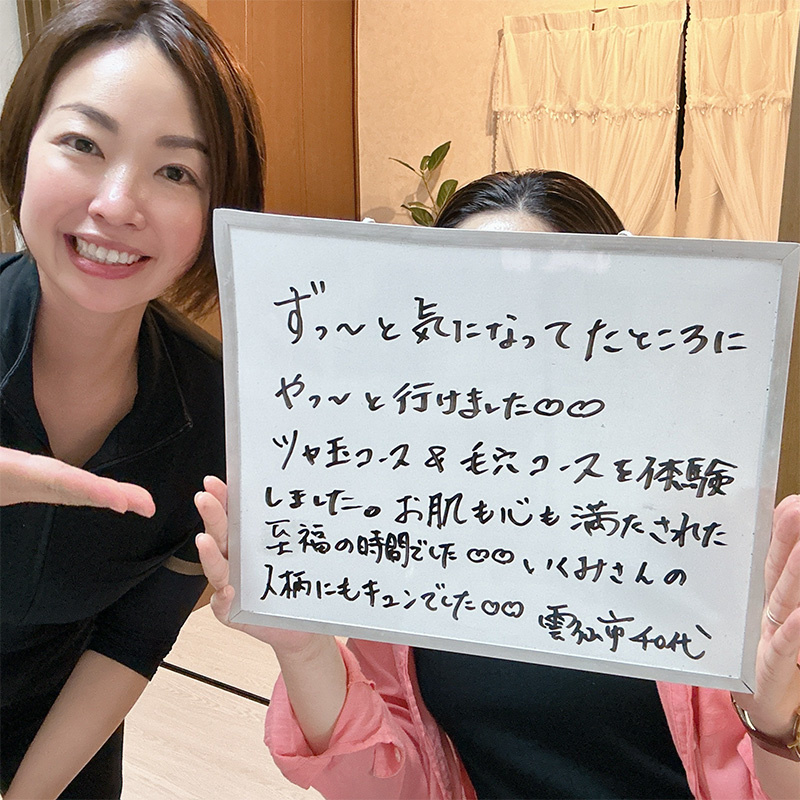 ずっ〜と気になってたところに
やっ〜と行けました♡♡
ツヤ玉コース&毛穴コースを体験
しました。お肌も心も満たされた
至福の時間でした♡♡いくみさんの
人柄にもキュンでした♡♡ 雲仙市 40代